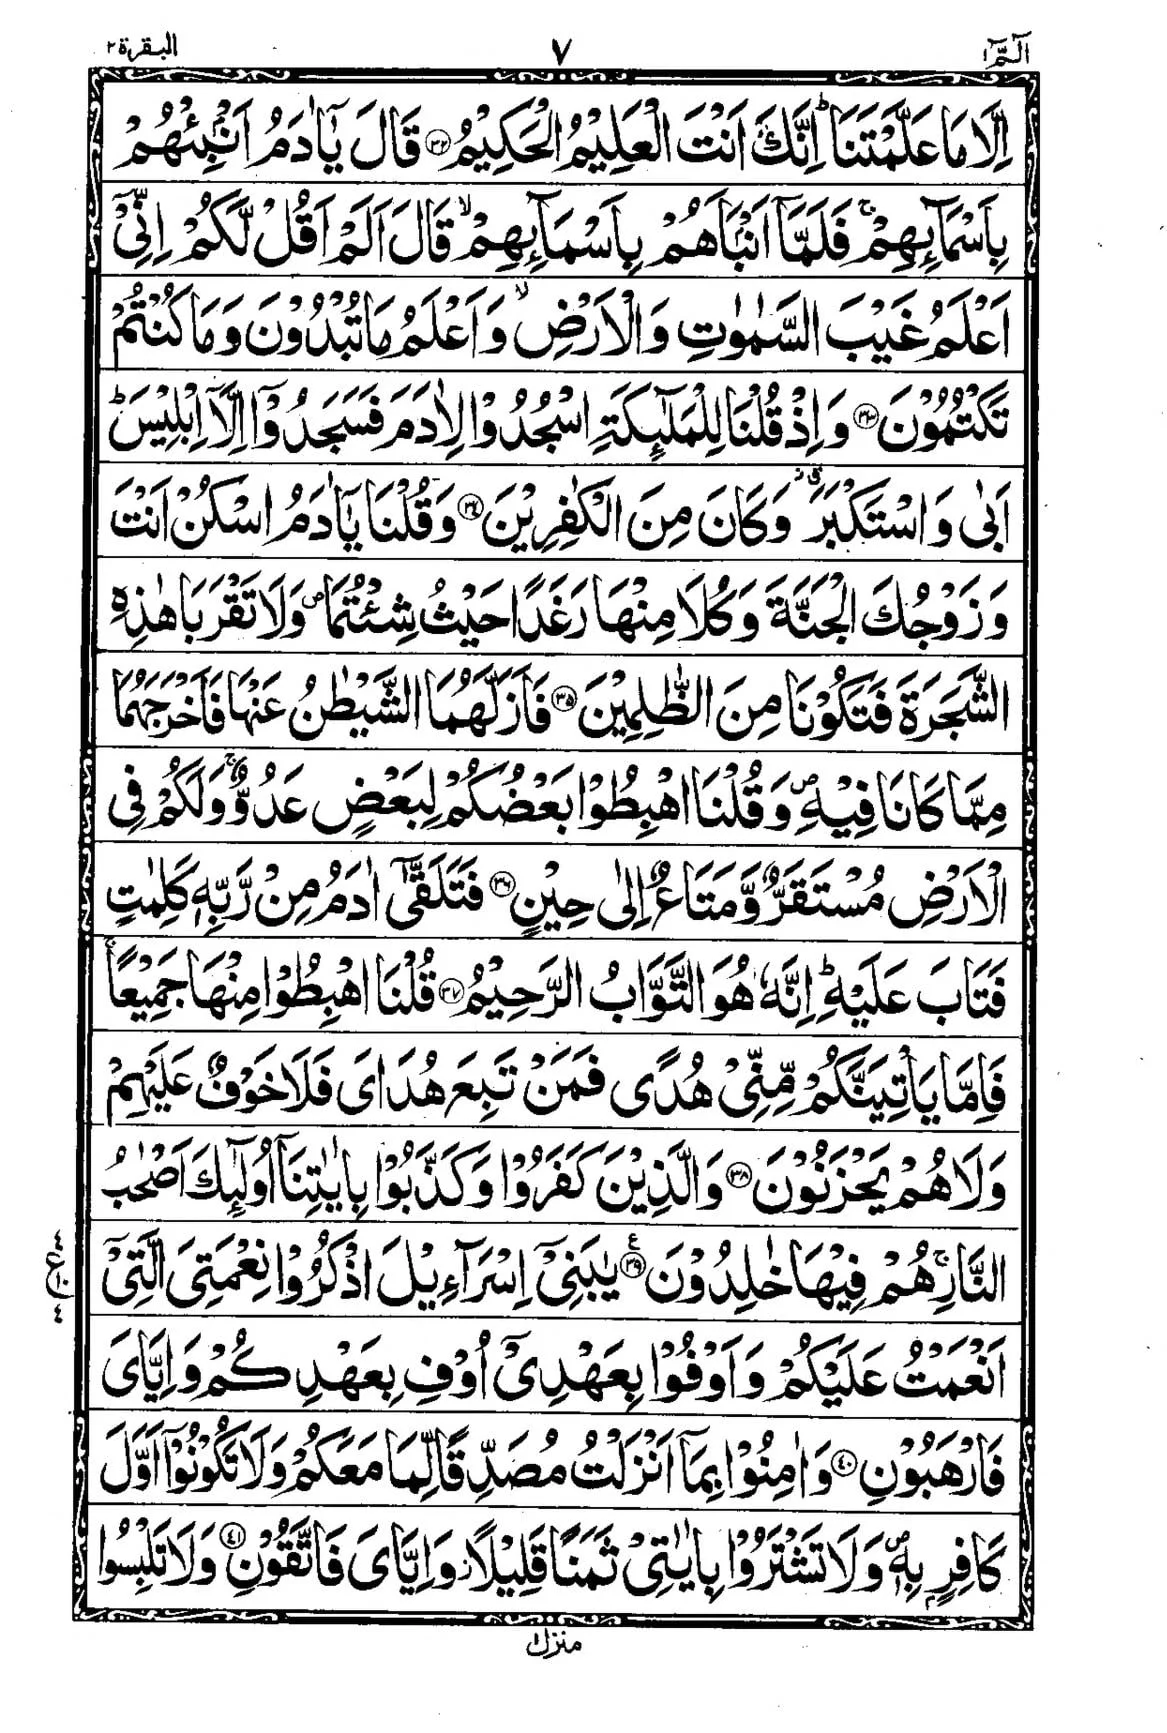 الٓمّٓ ١ ٧ البقرة ٢
اِلَّا مَا عَلَّمْتَنَا ؕ اِنَّكَ اَنْتَ الْعَلِيْمُ الْحَكِيْمُ ﴿۳۲﴾ قَالَ يٰۤاٰدَمُ اَنْۢبِئْهُمْ
بِاَسْمَآئِهِمْ ۚ فَلَمَّاۤ اَنْۢبَاَهُمْ بِاَسْمَآئِهِمْ ۙ قَالَ اَلَمْ اَقُلْ لَّكُمْ اِنِّيْۤ
اَعْلَمُ غَيْبَ السَّمٰوٰتِ وَالْاَرْضِ ۙ وَاَعْلَمُ مَا تُبْدُوْنَ وَمَا كُنْتُمْ
تَكْتُمُوْنَ ﴿۳۳﴾ وَاِذْ قُلْنَا لِلْمَلٰٓئِكَةِ اسْجُدُوْا لِاٰدَمَ فَسَجَدُوْۤا اِلَّاۤ اِبْلِيْسَ ؕ
اَبٰى وَاسْتَكْبَرَ ۫ۗ وَكَانَ مِنَ الْكٰفِرِيْنَ ﴿۳۴﴾ وَقُلْنَا يٰۤاٰدَمُ اسْكُنْ اَنْتَ
وَزَوْجُكَ الْجَنَّةَ وَكُلَا مِنْهَا رَغَدًا حَيْثُ شِئْتُمَا ۪ وَلَا تَقْرَبَا هٰذِهِ
الشَّجَرَةَ فَتَكُوْنَا مِنَ الظّٰلِمِيْنَ ﴿۳۵﴾ فَاَزَلَّهُمَا الشَّيْطٰنُ عَنْهَا فَاَخْرَجَهُمَا
مِمَّا كَانَا فِيْهِ ۪ وَقُلْنَا اهْبِطُوْا بَعْضُكُمْ لِبَعْضٍ عَدُوٌّ ۚ وَلَكُمْ فِى
الْاَرْضِ مُسْتَقَرٌّ وَّمَتَاعٌ اِلٰى حِيْنٍ ﴿۳۶﴾ فَتَلَقّٰۤى اٰدَمُ مِنْ رَّبِّهٖ كَلِمٰتٍ
فَتَابَ عَلَيْهِ ؕ اِنَّهٗ هُوَ التَّوَّابُ الرَّحِيْمُ ﴿۳۷﴾ قُلْنَا اهْبِطُوْا مِنْهَا جَمِيْعًا ۚ
فَاِمَّا يَاْتِيَنَّكُمْ مِّنِّيْ هُدًى فَمَنْ تَبِعَ هُدَاىَ فَلَا خَوْفٌ عَلَيْهِمْ
وَلَا هُمْ يَحْزَنُوْنَ ﴿۳۸﴾ وَالَّذِيْنَ كَفَرُوْا وَكَذَّبُوْا بِاٰيٰتِنَاۤ اُولٰٓئِكَ اَصْحٰبُ
النَّارِ ۚ هُمْ فِيْهَا خٰلِدُوْنَ ﴿۳۹﴾ ع يٰبَنِيْۤ اِسْرَآءِيْلَ اذْكُرُوْا نِعْمَتِىَ الَّتِيْۤ
اَنْعَمْتُ عَلَيْكُمْ وَاَوْفُوْا بِعَهْدِيْۤ اُوْفِ بِعَهْدِكُمْ وَاِيَّاىَ
فَارْهَبُوْنِ ﴿۴۰﴾ وَاٰمِنُوْا بِمَاۤ اَنْزَلْتُ مُصَدِّقًا لِّمَا مَعَكُمْ وَلَا تَكُوْنُوْۤا اَوَّلَ
كَافِرٍۭ بِهٖ ۪ وَلَا تَشْتَرُوْا بِاٰيٰتِيْ ثَمَنًا قَلِيْلًا ؗ وَاِيَّاىَ فَاتَّقُوْنِ ﴿۴۱﴾ وَلَا تَلْبِسُوا
منزل